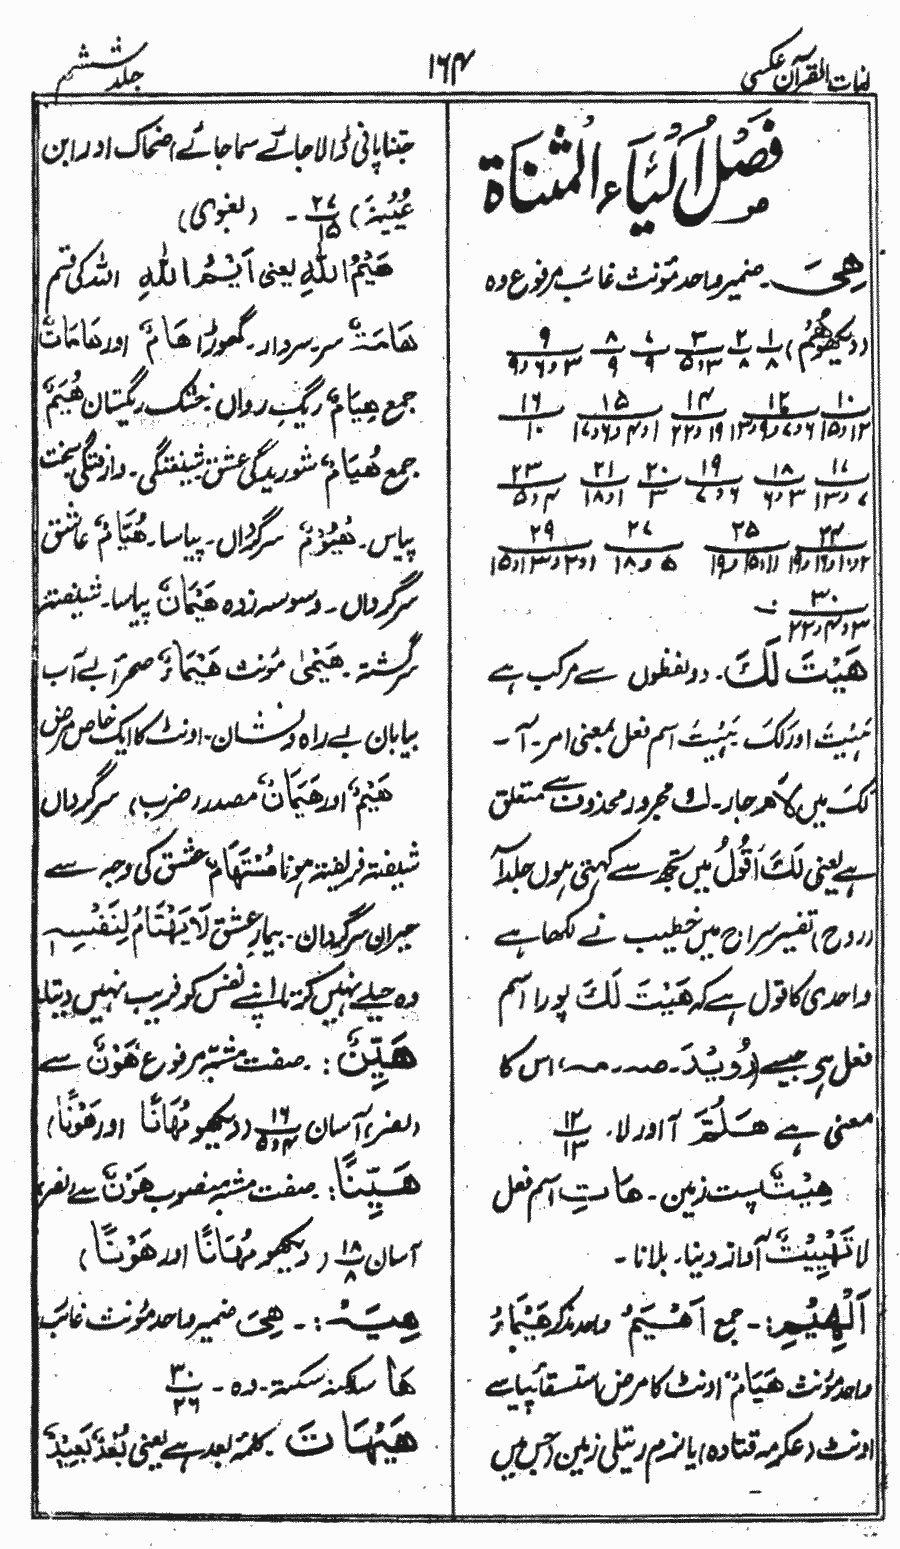 لغات القرآن عکسی
۱۶۴
جلد ششم
فَصْلُ الْیَاءِ الْمُثَنَاۃ
هِیَ۔ ضمیر واحد مؤنث غائب مرفوع وہ
(دیکھو هُمْ) ۱/۸ ۲/۸ ۳/۳و۵ ۷/۹ ۸/۹ ۹/۳و۶و۹
۱۰/۱۲و۱۵ ۱۲/۶و۷و۹و۱۳ ۱۴/۱۹و۲۲ ۱۵/۱و۴و۶و۱۷ ۱۶/۱۰
۱۷/۷و۱۳ ۱۸/۳و۶ ۱۹/۶و۷ ۲۰/۳ ۲۱/۱و۱۸ ۲۳/۴و۵
۲۴ ۲۵ ۲۷/۵و۱۸ ۲۹/۱و۲و۳و۱۵
۳۰/۳و۴و۲۲ ۔
هَیْتَ لَکَ۔ دو لفظوں سے مرکب ہے
هَیْتَ اور لَکَ هَیْتَ اسم فعل بمعنی امر۔ آ۔
لَکَ میں لام حرف جار۔ ک مجرور محذوف سے متعلق
ہے یعنی لَکَ اَقُوْلُ میں تجھ سے کہتی ہوں جلد آ
(روح) تفسیر سراج میں خطیب نے لکھا ہے
واحدی کا قول ہے کہ هَیْتَ لَکَ پورا اسم
فعل ہے جیسے (رُوَیْدَ۔ صہ۔ مہ) اس کا
معنی ہے هَلُمَّ آ اور لا۔ ۱۲/۱۳
هِیْتٌ پست زمین۔ هَاتِ اسم فعل
لا تَهْیِیْتٌ آواز دینا۔ بلانا۔
اَلْهِیْمِ :۔ جمع اَهْیَمُ واحد مذکر هَیْمَاءُ
واحد مؤنث هَیَامٌ اونٹ کا مرض استسقا پیاسے
اونٹ (عکرمہ قتادہ) یا نرم ریتلی زمین (جس میں
جتنا پانی ڈالا جائے سما جائے) ضحاک اور ابن
عُیَیْنَۃ) ۲۷/۱۵ ۔ (بغوی)
هَیْمُ اللّٰہِ یعنی اَیْمُ اللّٰہِ اللہ کی قسم
هَامَۃٌ سر۔ سردار۔ گھوڑا هَامٌ اور هَامَاتٌ
جمع هِیَامٌ ریگ رواں۔ خشک ریگستان هُیُمٌ
جمع هُیَامٌ شوریدگی عشق شیفتگی۔ وارفتگی سخت
پیاس۔ هُیُوْمٌ سرگرداں۔ پیاسا۔ هُیَّامٌ عاشق
سرگرداں۔ وسوسہ زدہ هَیْمَانٌ پیاسا۔ شیفتہ
سرگشتہ۔ هَیْمٰی مؤنث هَیْمَاءُ صحرا بے آب
بیابان بے راہ و نشان۔ اونٹ کا ایک خاص مرض
هَیْمٌ اور هَیَمَانٌ مصدر (ضرب) سرگرداں
شیفتہ فریفتہ ہونا مُسْتَهَامٌ عشق کی وجہ سے
حیران سرگردان۔ بیمارِ عشق لَا یَهْتَامُ لِنَفْسِہ
وہ حیلے نہیں کرتا اپنے نفس کو فریب نہیں دیتا
هَیِّنٌ :۔ صفت مشبہ مرفوع هَوْنٌ سے
(نصر) آسان ۱۶/۴و۵ (دیکھو مُهَانًا اور هَوْنًا)
هَیِّنًا :۔ صفت مشبہ منصوب هَوْنٌ سے (نصر)
آسان ۱۸/۸ (دیکھو مُهَانًا اور هَوْنًا)
هِیَہْ :۔ هِیَ ضمیر واحد مؤنث غائب
هَا ساکنہ سکتہ۔ وہ۔ ۳۰/۲۶
هَیْهَاتَ ۔ کلمۂ بعد ہے یعنی بُعْدٌ بَعِیْدٌ